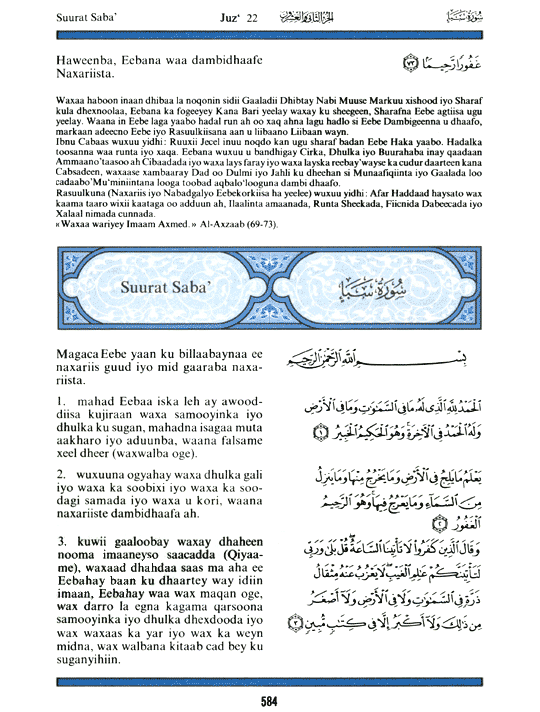 Suurat Saba’ Juz‘ 22 الجزء الثاني والعشرون سورة سبأ
Haweenba, Eebana waa dambidhaafe
Naxariista.
غَفُورًا رَّحِيمًا ٧٣
Waxaa haboon inaan dhibaa la noqonin sidii Gaaladii Dhibtay Nabi Muuse Markuu xishood iyo Sharaf
kula dhexnoolaa, Eebana ka fogeeyey Kana Bari yeelay waxay ku sheegeen, Sharafna Eebe agtiisa ugu
yeelay. Waana in Eebe laga yaabo hadal run ah oo xaq ahna lagu hadlo si Eebe Dambigeenna u dhaafo,
markaan adeecno Eebe iyo Rasuulkiisana aan u liibaano Liibaan wayn.
Ibnu Cabaas wuxuu yidhi: Ruuxii Jecel inuu noqdo kan ugu sharaf badan Eebe Haka yaabo. Hadalka
toosanna waa runta iyo xaqa. Eebana wuxuu u bandhigay Cirka, Dhulka iyo Buurahaba inay qaadaan
Ammaano'taasoo ah Cibaadada iyo waxa lays faray iyo waxa layska reebay'wayse ka cudur daarteen kana
Cabsadeen, waxaase xambaaray Dad oo Dulmi iyo Jahli ku dheehan si Munaafiqiinta iyo Gaalada loo
cadaabo'Mu'miniintana looga toobad aqbalo'looguna dambi dhaafo.
Rasuulkuna (Naxariis iyo Nabadgalyo Eebekorkiisa ha yeelee) wuxuu yidhi: Afar Haddaad haysato wax
kaama taaro wixii kaataga oo adduun ah, Ilaalinta amaanada, Runta Sheekada, Fiicnida Dabeecada iyo
Xalaal nimada cunnada.
«Waxaa wariyey Imaam Axmed.» Al-Axzaab (69-73).
Suurat Saba’ سُورَةُ سَبَإٍ
Magaca Eebe yaan ku billaabaynaa ee
naxariis guud iyo mid gaaraba naxa-
riista.
بِسْمِ اللَّهِ الرَّحْمَٰنِ الرَّحِيمِ
1. mahad Eebaa iska leh ay awood-
diisa kujiraan waxa samooyinka iyo
dhulka ku sugan, mahadna isagaa muta
aakharo iyo aduunba, waana falsame
xeel dheer (waxwalba oge).
الْحَمْدُ لِلَّهِ الَّذِي لَهُ مَا فِي السَّمَٰوَٰتِ وَمَا فِي الْأَرْضِ
وَلَهُ الْحَمْدُ فِي الْآخِرَةِ وَهُوَ الْحَكِيمُ الْخَبِيرُ ١
2. wuxuuna ogyahay waxa dhulka gali
iyo waxa ka soobixi iyo waxa ka soo-
dagi samada iyo waxa u kori, waana
naxariiste dambidhaafa ah.
يَعْلَمُ مَا يَلِجُ فِي الْأَرْضِ وَمَا يَخْرُجُ مِنْهَا وَمَا يَنزِلُ
مِنَ السَّمَاءِ وَمَا يَعْرُجُ فِيهَا وَهُوَ الرَّحِيمُ
الْغَفُورُ ٢
3. kuwii gaaloobay waxay dhaheen
nooma imaaneyso saacadda (Qiyaa-
me), waxaad dhahdaa saas ma aha ee
Eebahay baan ku dhaartey way idiin
imaan, Eebahay waa wax maqan oge,
wax darro la egna kagama qarsoona
samooyinka iyo dhulka dhexdooda iyo
wax waxaas ka yar iyo wax ka weyn
midna, wax walbana kitaab cad bey ku
suganyihiin.
وَقَالَ الَّذِينَ كَفَرُوا لَا تَأْتِينَا السَّاعَةُ قُلْ بَلَىٰ وَرَبِّي
لَتَأْتِيَنَّكُمْ عَالِمِ الْغَيْبِ لَا يَعْزُبُ عَنْهُ مِثْقَالُ
ذَرَّةٍ فِي السَّمَٰوَٰتِ وَلَا فِي الْأَرْضِ وَلَا أَصْغَرُ
مِن ذَٰلِكَ وَلَا أَكْبَرُ إِلَّا فِي كِتَٰبٍ مُّبِينٍ ٣
584